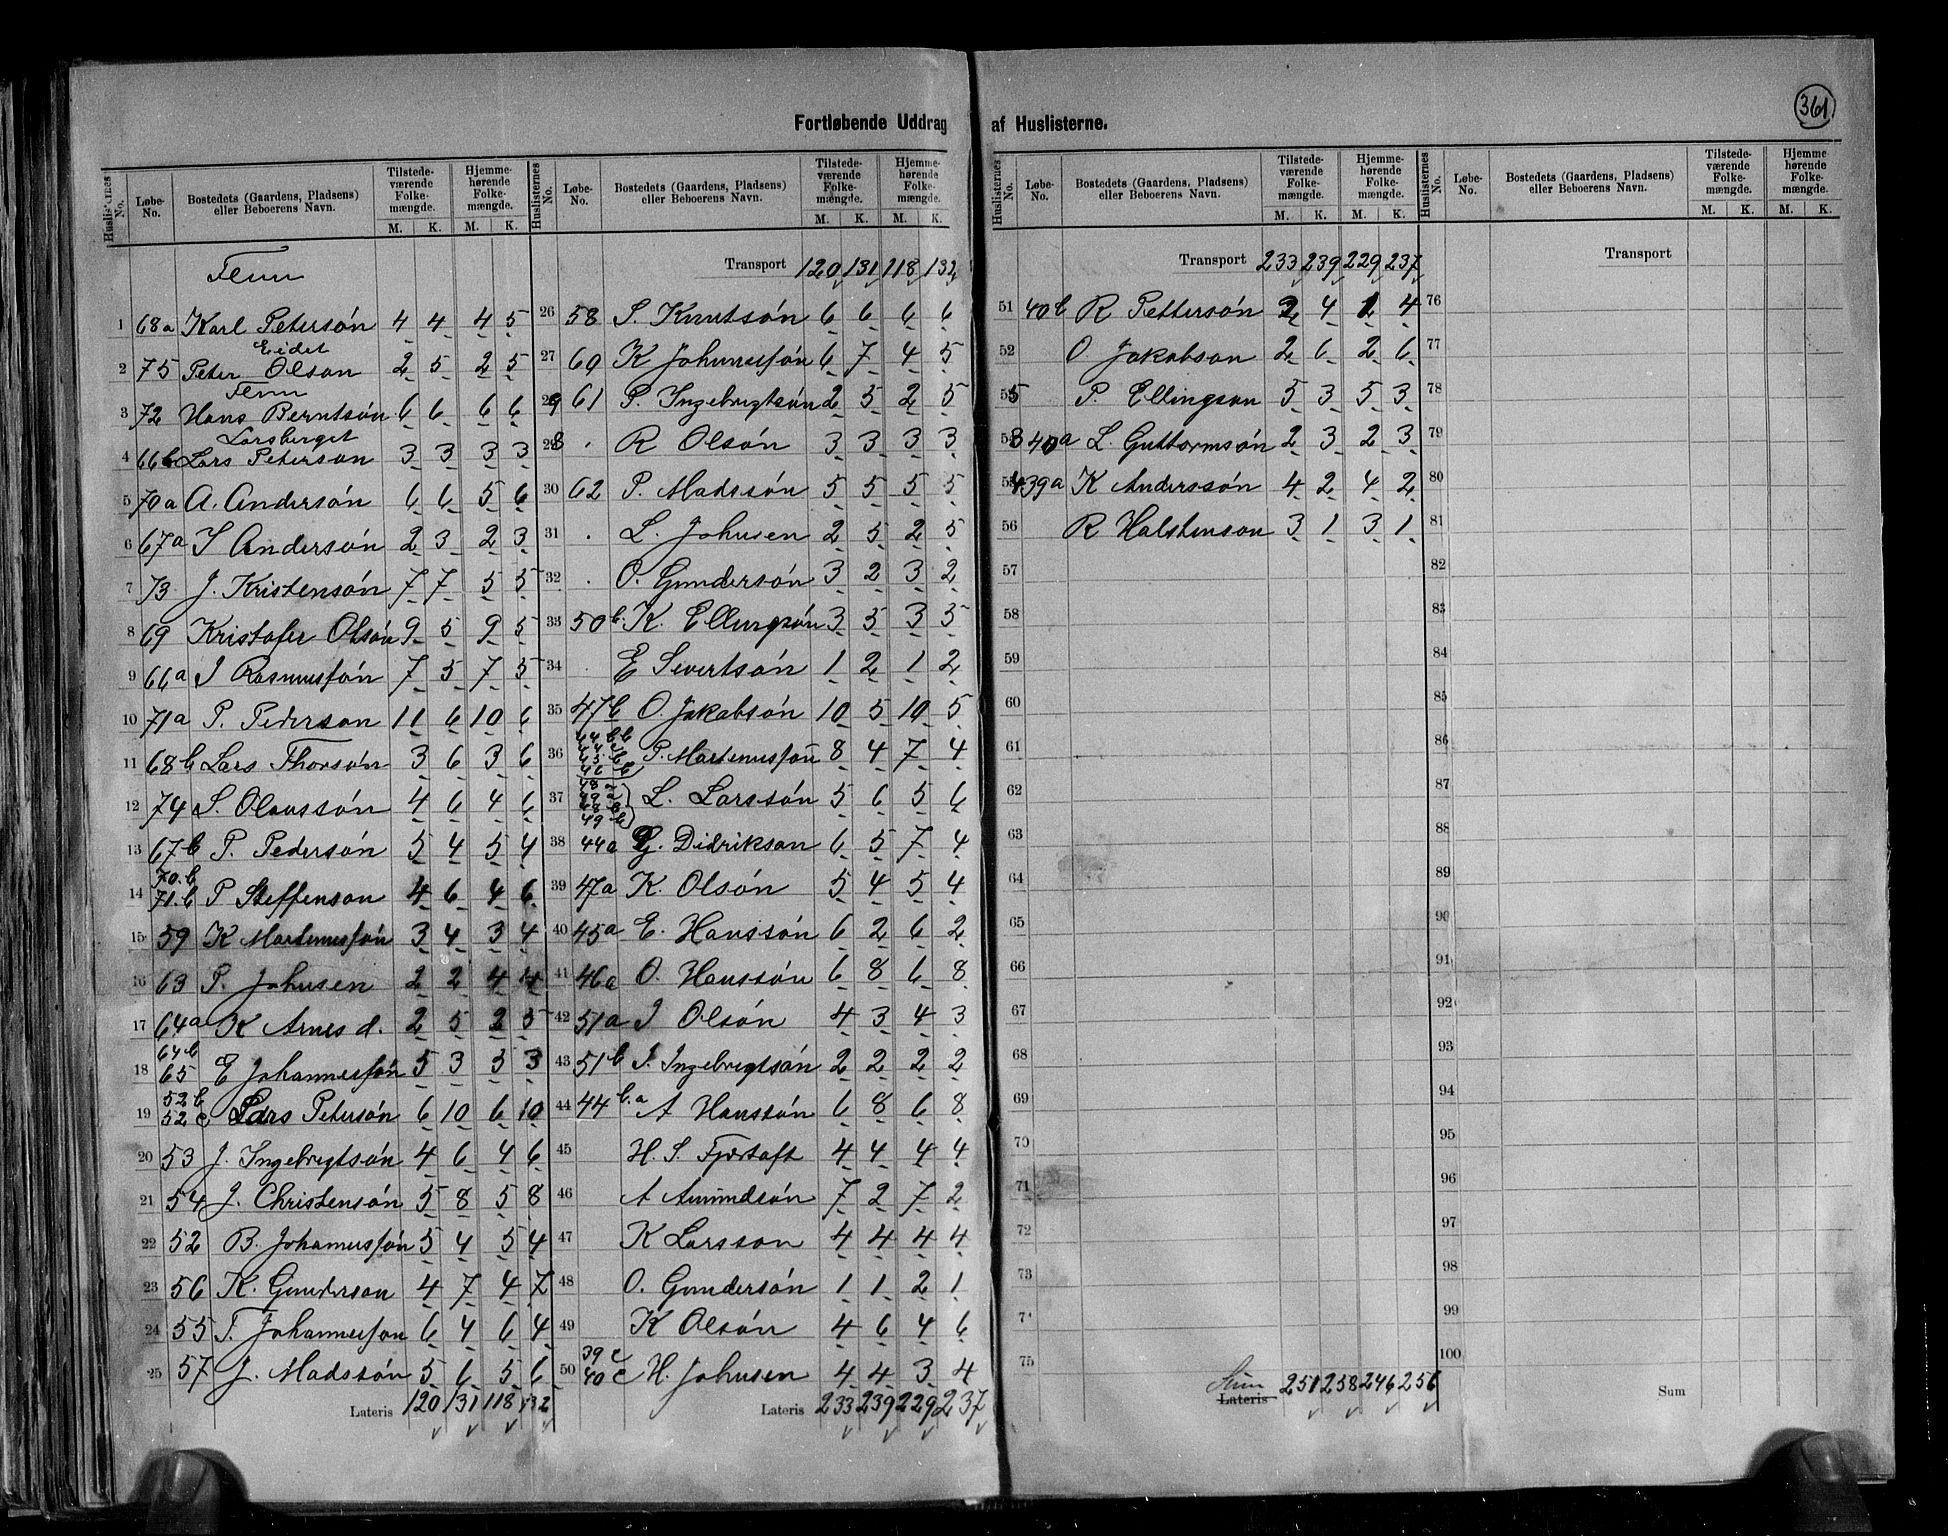 361
Fortløbende Uddrag af Huslisterne.
Huslisternes No. Løbe-No. Bostedets (Gaardens, Pladsens) eller Beboerens Navn. Tilstedeværende Folkemængde. M. K. Hjemmehørende Folkemængde. M. K.
1 68a Karl Petersón 4 4 4 5
Eidet
2 75 Peter Olson 2 5 2 5
3 72 Hans Berntsón 6 6 6 6
Larsberget
4 66b Lars Peterson 3 3 3 3
5 70a A. Andersón 6 6 5 6
6 67a I Andersón 2 3 2 3
7 73 J. Kristensón 7 7 5 5
8 69 Kristofer Olsón 9 5 9 5
9 66a I Rasmusson 7 5 7 5
10 71a P. Pederson 11 6 10 6
11 68b Lars Thorsón 3 6 3 6
12 74 S. Olaussón 4 6 4 6
13 67b P. Pedersón 5 4 5 4
14 70.b 71.b P Steffenson 4 6 4 6
15 59 K Martinussón 3 4 3 4
16 63 P. Johnsen 2 2 4 4
17 64a K Arnes d. 2 5 2 5
18 64b 65 E Johannessón 5 3 5 3
19 52b 52c Lars Petersón 6 10 6 10
20 53 J. Ingebrigtsón 4 6 4 6
21 54 J. Christensón 5 8 5 8
22 52 B. Johannessón 5 4 5 4
23 56 K. Gunderson 4 7 4 7
24 55 T. Johannesson 6 4 6 4
25 57 J. Madssón 5 6 5 6
Lateris 120 131 118 132
Huslisternes No. Løbe-No. Bostedets (Gaardens, Pladsens) eller Beboerens Navn. Tilstedeværende Folkemængde. M. K. Hjemmehørende Folkemængde. M. K.
Transport 120 131 118 132
26 58 S. Knutsón 6 6 6 6
27 60 K Johannessón 6 7 4 5
29 61 P. Ingebrigtsón 2 5 2 5
28 . R Olsón 3 3 3 3
30 62 P. Madssón 5 5 5 5
31 . L. Johnsen 2 5 2 5
32 . O. Gundersón 3 2 3 2
33 50b. K. Ellingsón 3 5 3 5
34 . E Sivertsón 1 2 1 2
35 47b O. Jakobsón 10 5 10 5
36 P. Martinussón 8 4 7 4
37 L. Larssón 5 6 5 6
38 44a G. Didrikson 6 5 7 4
39 47a K. Olsón 5 4 5 4
40 45a E. Hanssón 6 2 6 2
41 46a O. Hanssón 6 8 6 8
42 51a I Olsón 4 3 4 3
43 51b I. Ingebrigtsón 2 2 2 2
44 44b.a A Hanssón 6 8 6 8
45 H. S. Fjørtoft 4 4 4 4
46 A Amundsón 7 2 7 2
47 K Larsson 4 4 4 4
48 O. Gundersón 1 1 2 1
49 K Olsón 4 6 4 6
50 39c 40c H. Johnsen 4 4 3 4
Lateris 233 239 229 237
Huslisternes No. Løbe-No. Bostedets (Gaardens, Pladsens) eller Beboerens Navn. Tilstedeværende Folkemængde. M. K. Hjemmehørende Folkemængde. M. K.
Transport 233 239 229 237
51 40b R Pettersón 2 4 4
52 O Jakobson 2 6 2 6
55 P. Ellingson 5 3 5 3
53 40a L. Guttormsón 2 3 2 3
54 39a K Anderssón 4 2 4 2
56 R Halstenson 3 1 3 1
57
58
59
60
61
62
63
64
65
66
67
68
69
70
71
72
73
74
75
Sum Lateris 251 258 246 256
Huslisternes No. Løbe-No. Bostedets (Gaardens, Pladsens) eller Beboerens Navn. Tilstedeværende Folkemængde. M. K. Hjemmehørende Folkemængde. M. K.
Transport
76
77
78
79
80
81
82
83
84
85
86
87
88
89
90
91
92
93
94
95
96
97
98
99
100
Sum